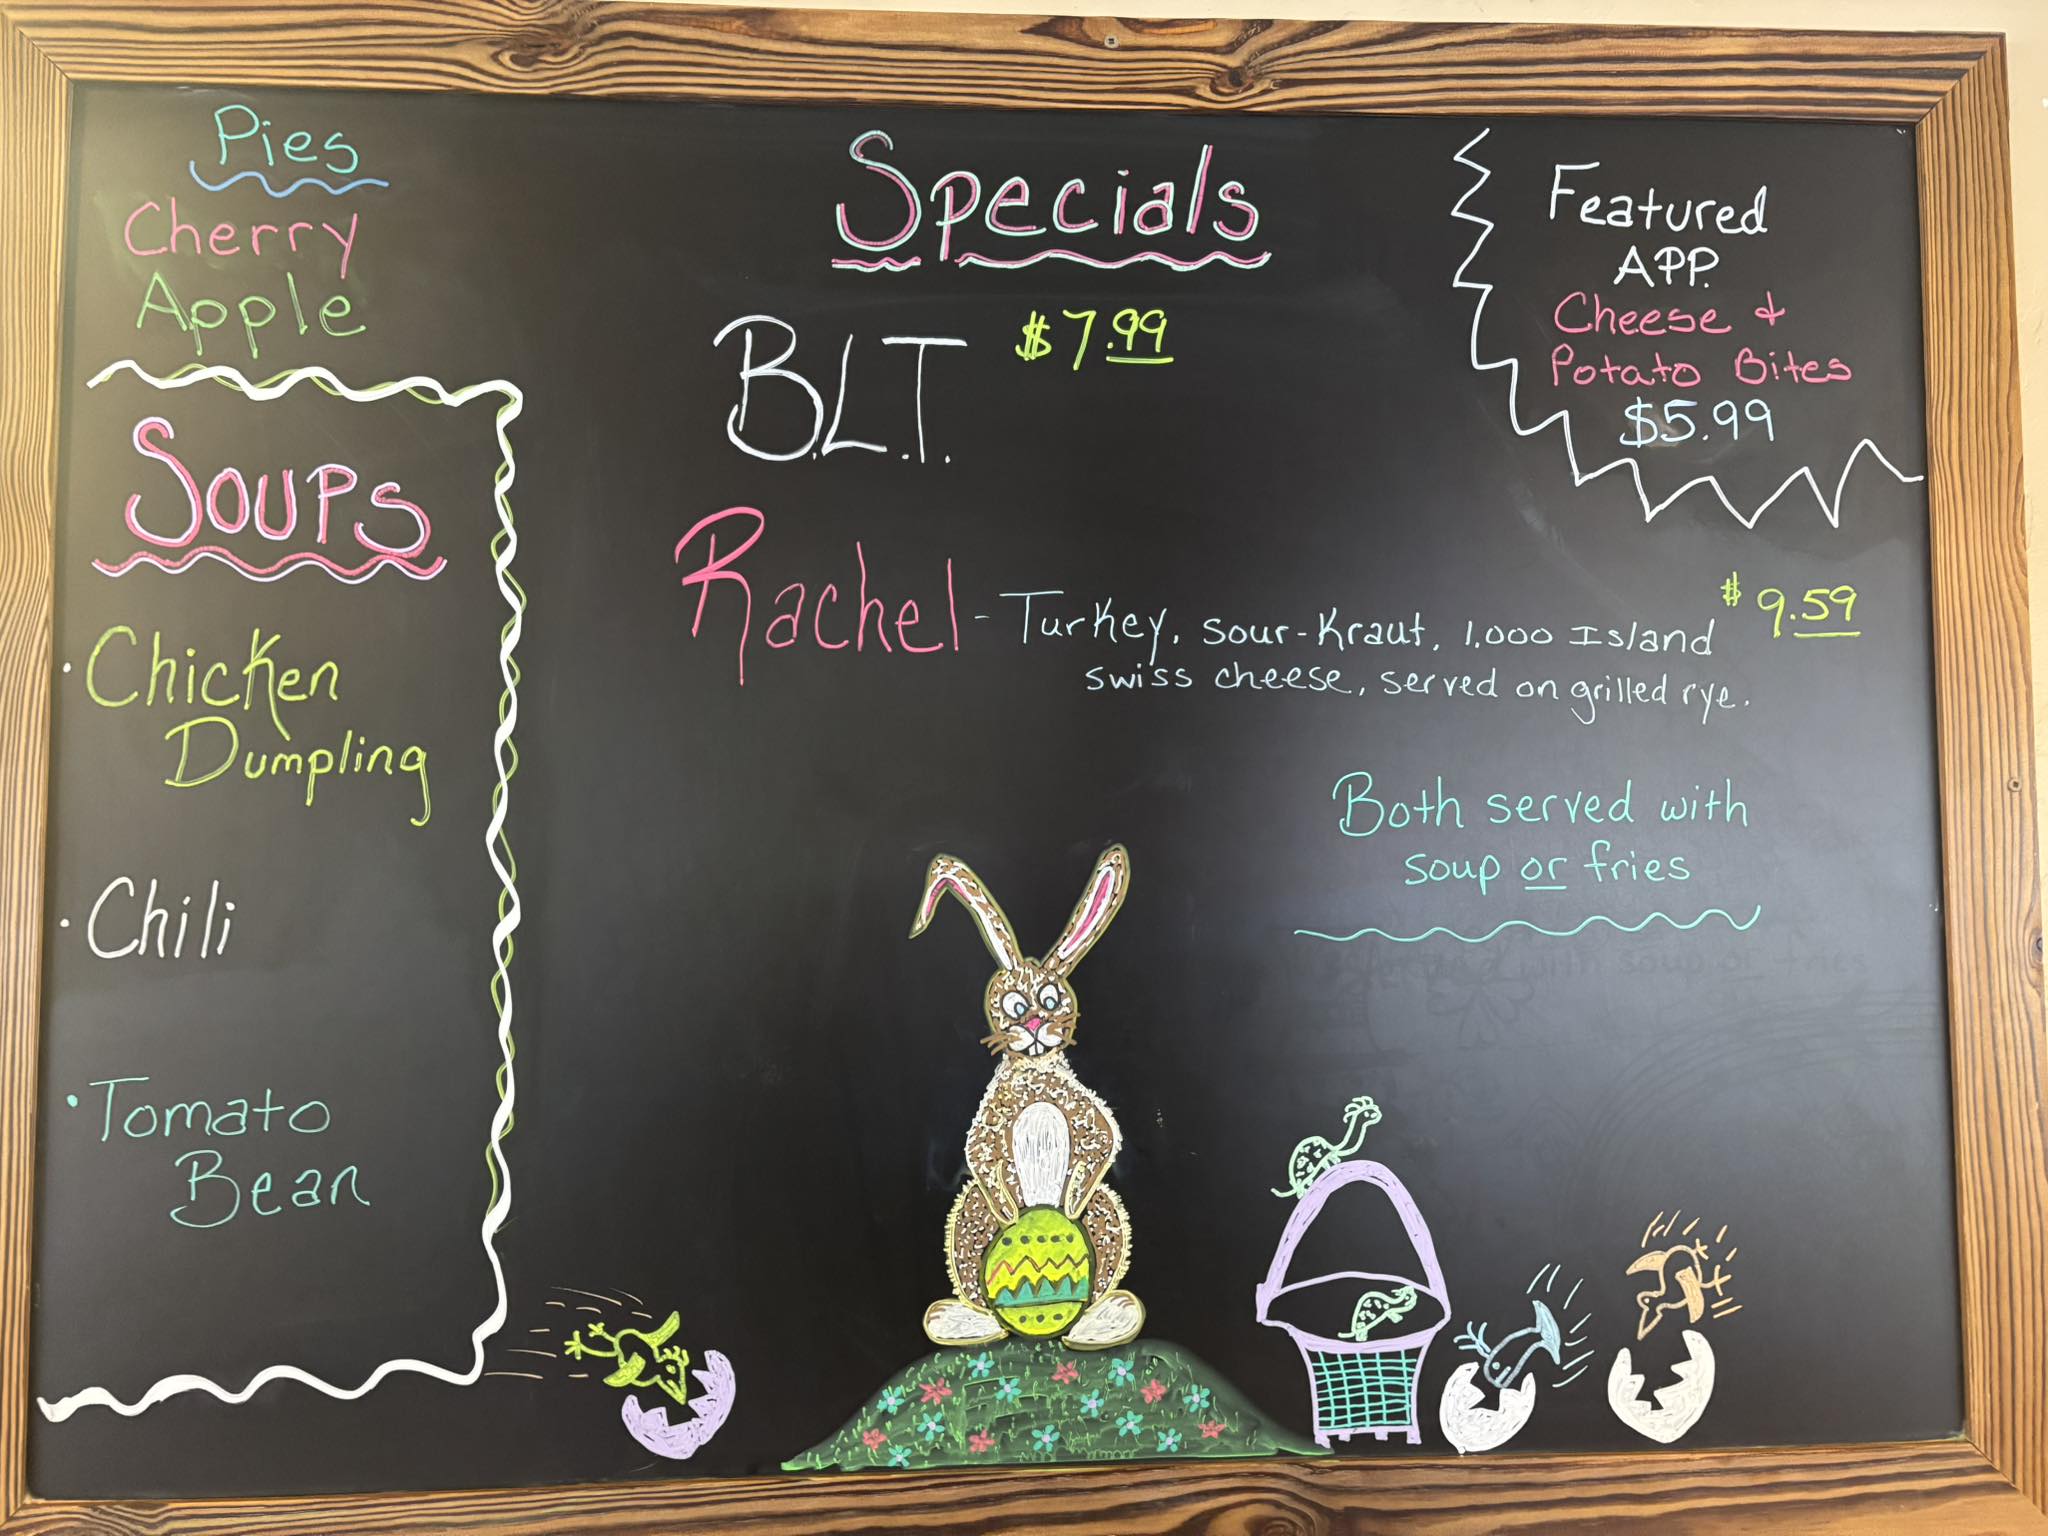 Pies
Cherry
Apple
Soups
• Chicken
Dumpling
• Chili
• Tomato
Bean
Specials
B.L.T. $7.99
Rachel - Turkey, sour-Kraut, 1,000 Island $9.59
swiss cheese, served on grilled rye.
Both served with
soup or fries
Featured
APP.
Cheese &
Potato Bites
$5.99